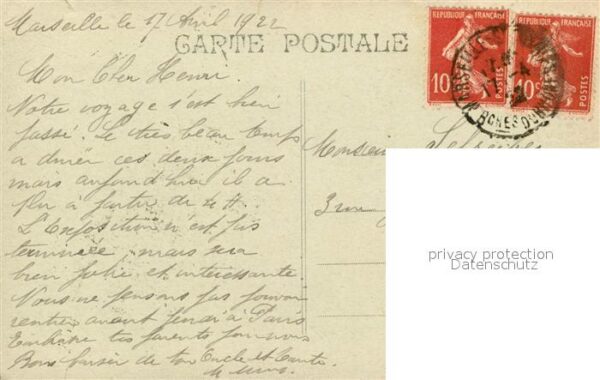 Marseille le 17 Avril 1922
CARTE POSTALE
Mon Cher Henri
Notre voyage s'est bien
passé Le très beau temps
a durer ces deux jours
mais aujourd'hui il a
plu à partir de 4 H.
L'Exposition n'est pas
terminée mais sera
bien jolie et intéressante
Nous ne pensons pas pouvoir
rentrer avant jeudi à Paris
Embrasse tes parents pour nous
Bons baiser de ton Oncle et Tante
REPUBLIQUE FRANÇAISE
10c
POSTES
REPUBLIQUE FRANÇAISE
10c
POSTES
MARSEILLE
BCHES DU RHONE
Monsieur
3 rue
privacy protection
Datenschutz